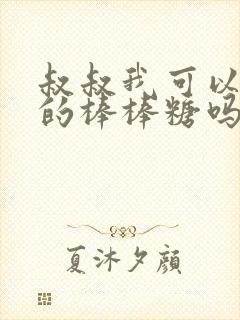 叔叔我可以
的棒棒糖吗
夏沐夕颜